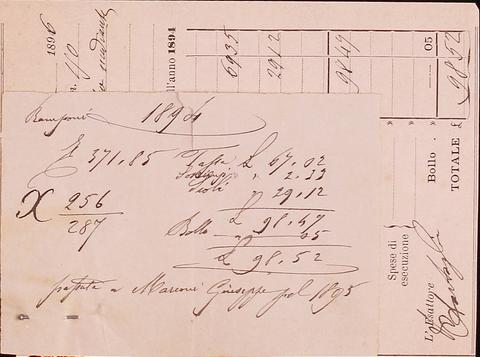 Ramponi 1894
£ 371,85 Tassa £ 67.02
" 2.33
X 256 " 29.12
287 £ 98.47
Bollo " 05
£ 98.52
passata a Marconi Giuseppe pel 1895
1896
ll'anno 1894
6935
2912
9847
05
9852
Bollo . "
TOTALE £
Spese di
esecuzione
L'Esattore